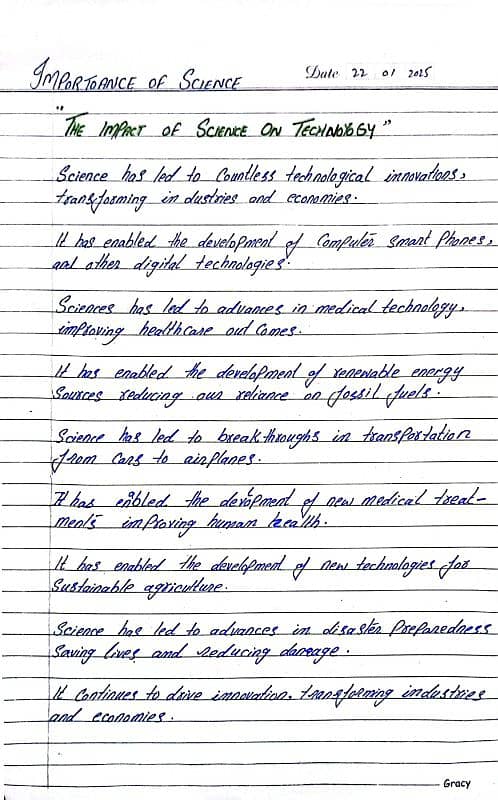 IMPORTOANCE OF SCIENCE
Date 22 01 2025
"THE IMPACT OF SCIENCE ON TECHNOLOGY"
Science has led to Countless technological innovations,
transforming in dustries and economies.
It has enabled the development of Computer smart phones,
and other digital technologies.
Sciences has led to advances in medical technology,
improving healthcare out comes.
It has enabled the development of renewable energy
Sources reducing our reliance on fossil fuels.
Science has led to break throughs in transportation
from Cars to airplanes.
It has enabled the devopment of new medical treat-
ments improving human health.
It has enabled the development of new technologies for
Sustainable agriculture.
Science has led to advances in disaster Preparedness
Saving lives and reducing damage.
It Continues to drive innovation, transforming industries
and economies.
Gracy